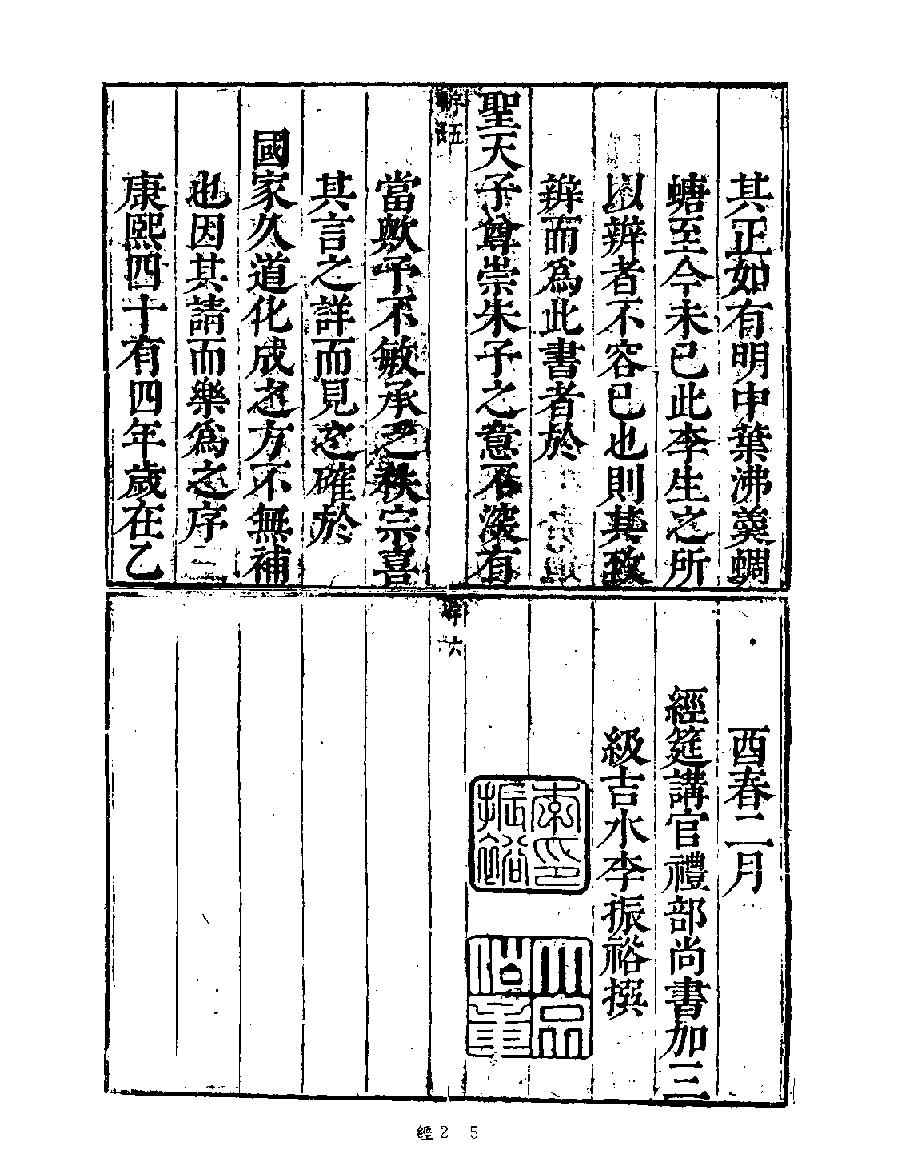 其正如有明中葉沸羹蜩
螗至今未已此李生之所
以辯者不容已也則其致
辨而爲此書者於
聖天子尊崇朱子之意不深有
序五
當歟予不敏承乏秩宗喜
其言之詳而見之確於
國家久道化成之方不無補
也因其請而樂爲之序
康熙四十有四年歲在乙
酉春二月
經筵講官禮部尚書加三
級吉水李振裕撰
李印
振裕
大宗
伯章
序六
經2 5